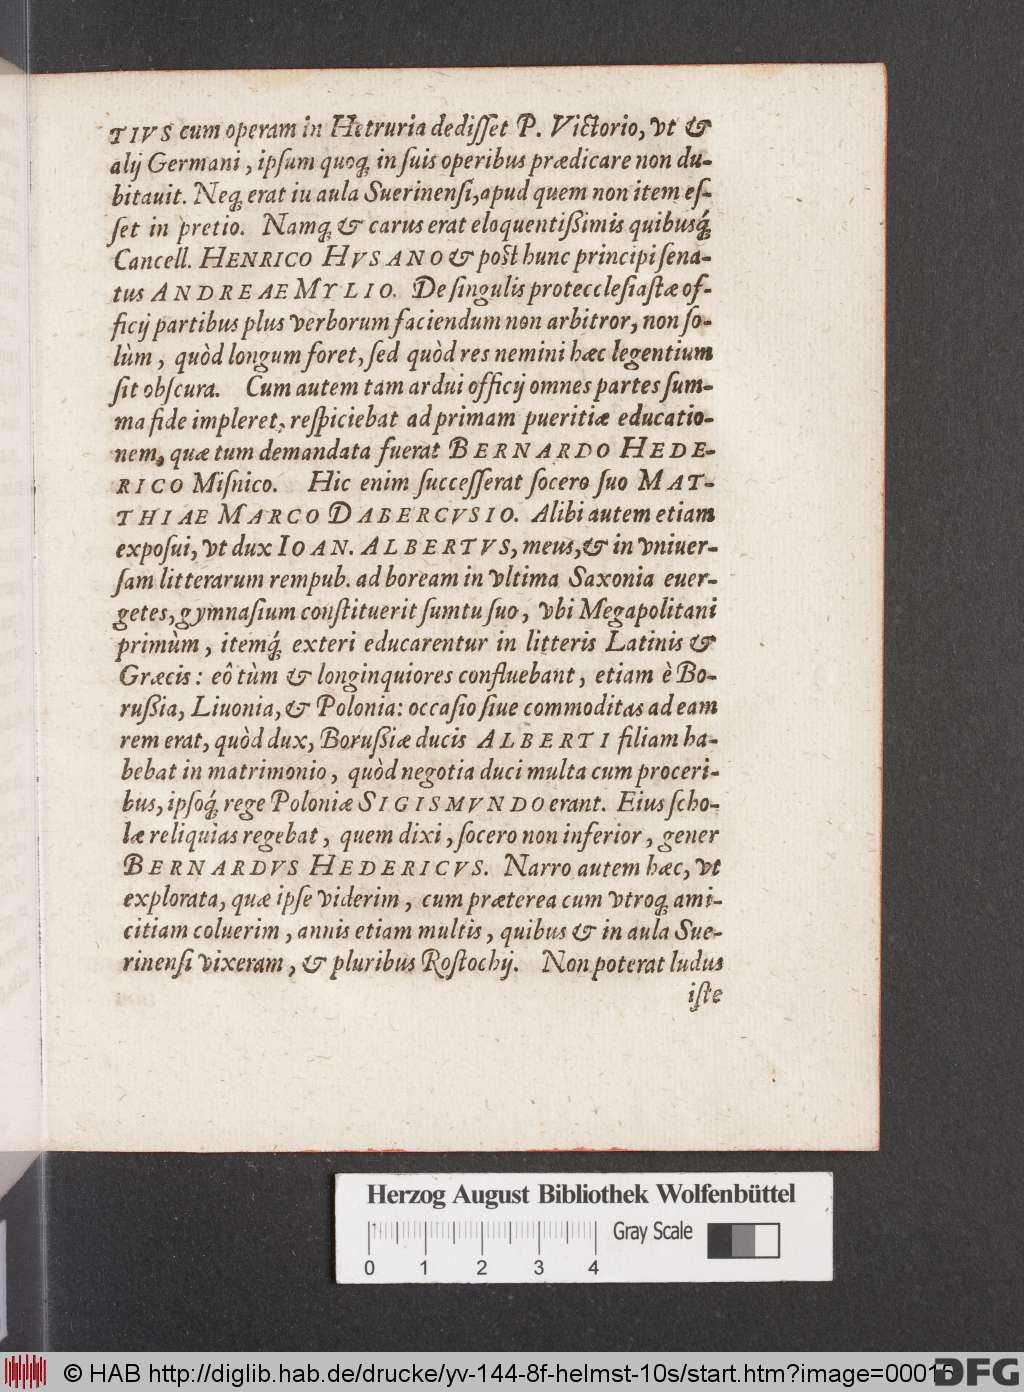 TIVS cum operam in Hetruria dedisset P. Victorio, vt &
alij Germani, ipsum quoq; in suis operibus prædicare non du-
bitauit. Neq; erat iu aula Suerinensi, apud quem non item es-
set in pretio. Namq; & carus erat eloquentißimis quibusq́;
Cancell. HENRICO HVSANO & post hunc principi sena-
tus ANDREAE MYLIO. De singulis protecclesiastæ of-
ficij partibus plus verborum faciendum non arbitror, non so-
lùm, quòd longum foret, sed quòd res nemini hæc legentium
sit obscura. Cum autem tam ardui officij omnes partes sum-
ma fide impleret, respiciebat ad primam pueritiæ educatio-
nem, quæ tum demandata fuerat BERNARDO HEDE-
RICO Misnico. Hic enim successerat socero suo MAT-
THIAE MARCO DABERCVSIO. Alibi autem etiam
exposui, vt dux IOAN. ALBERTVS, meus, & in vniuer-
sam litterarum rempub. ad boream in vltima Saxonia euer-
getes, gymnasium constituerit sumtu suo, vbi Megapolitani
primùm, itemq́; exteri educarentur in litteris Latinis &
Græcis: eô tùm & longinquiores confluebant, etiam è Bo-
rußia, Liuonia, & Polonia: occasio siue commoditas ad eam
rem erat, quòd dux, Borußiæ ducis ALBERTI filiam ha-
bebat in matrimonio, quòd negotia duci multa cum proceri-
bus, ipsoq́; rege Poloniæ SIGISMVNDO erant. Eius scho-
læ reliquias regebat, quem dixi, socero non inferior, gener
BERNARDVS HEDERICVS. Narro autem hæc, vt
explorata, quæ ipse viderim, cum præterea cum vtroq; ami-
citiam coluerim, annis etiam multis, quibus & in aula Sue-
rinensi vixeram, & pluribus Rostochij. Non poterat ludus
iste
Herzog August Bibliothek Wolfenbüttel
Gray Scale
0 1 2 3 4
© HAB http://diglib.hab.de/drucke/yv-144-8f-helmst-10s/start.htm?image=00015
DFG